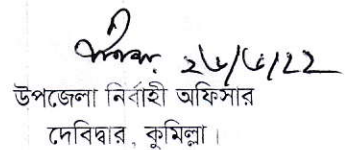 ২৬/৬/22
উপজেলা নির্বাহী অফিসার
দেবিদ্বার, কুমিল্লা।